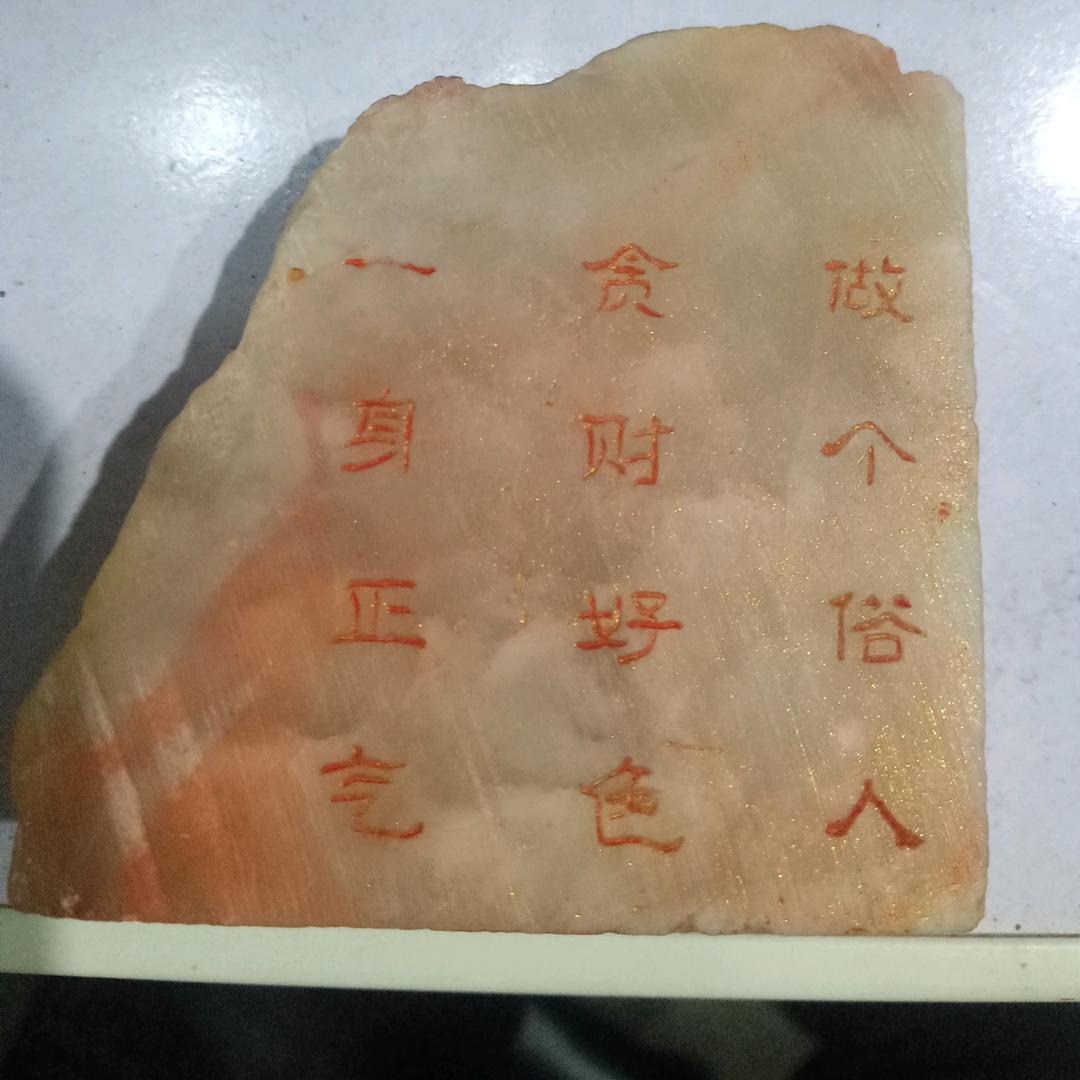 做个俗人
贪财好色
一身正气